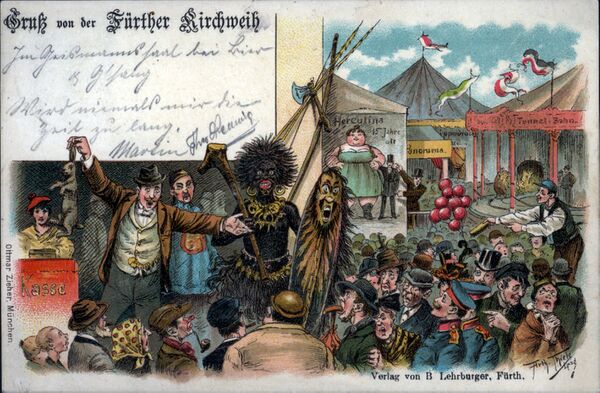 Gruß von der Fürther Kirchweih
Im Geismannssaal bei Bier
& Gesang
Wird niemals mir die
Zeit zu lang.
Martin
Herculina
15 Jahre
alt
Panorama.
Tunnel-Bahn.
Kasse
Ottmar Zieher, München.
Verlag von B. Lehrburger, Fürth.